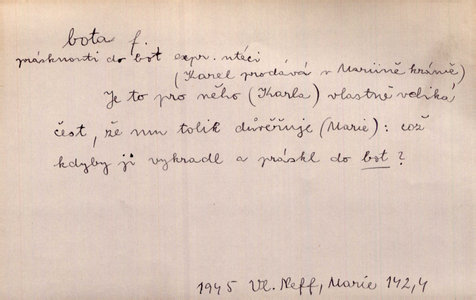 bota f.
prásknouti do bot expr. utéci
(Karel prodává v Mariině krámě)
Je to pro něho (Karla) vlastně veliká
čest, že mu tolik důvěřuje (Marie): což
kdyby ji vykradl a práskl do bot?
1945 Vl. Neff, Marie 142,4